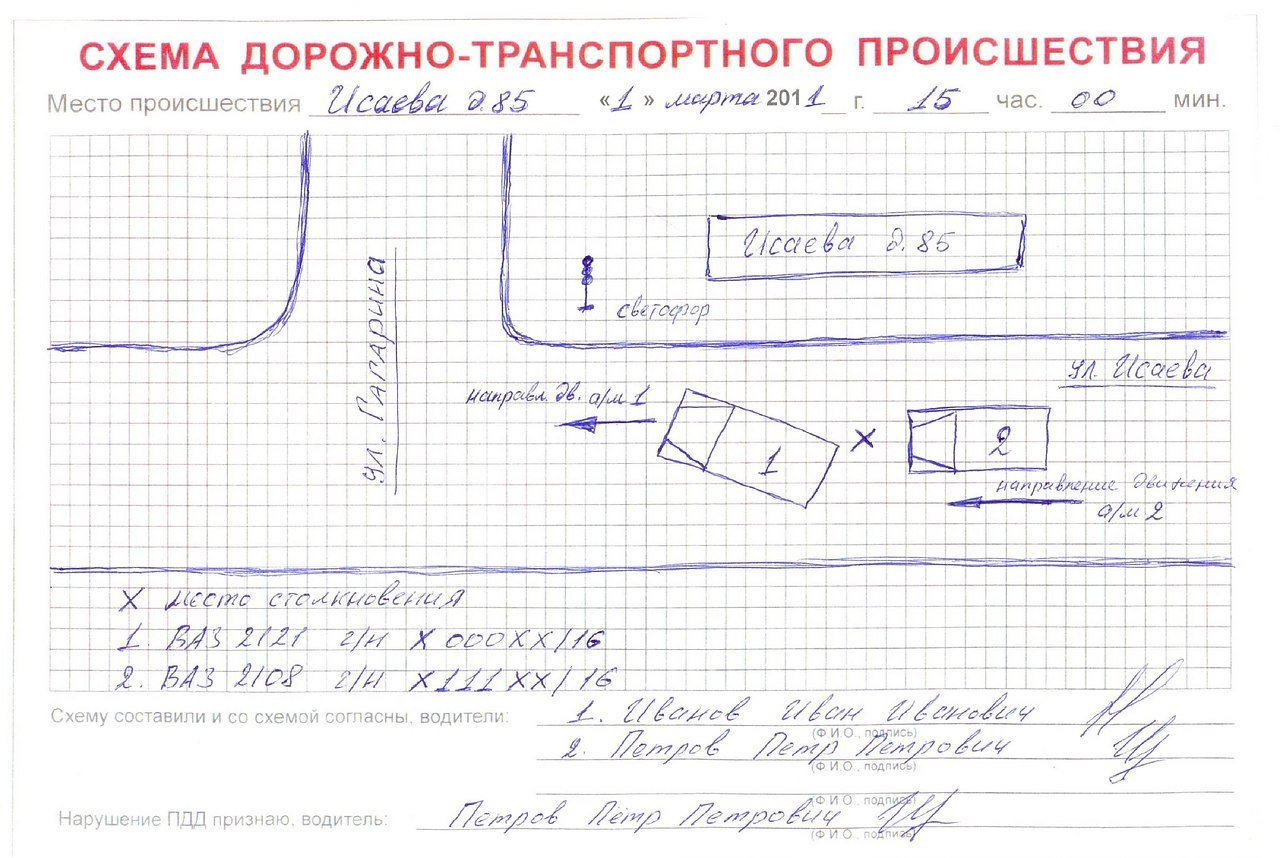 СХЕМА ДОРОЖНО-ТРАНСПОРТНОГО ПРОИСШЕСТВИЯ
Место происшествия Исаева д.85 «1» марта 2011 г. 15 час. 00 мин.
Исаева д.85
светофор
ул. Гагарина
ул. Исаева
направл. дв. а/м 1
1
X
2
направление движения
а/м 2
X место столкновения
1. ВАЗ 2121 г/н X 000 XX/16
2. ВАЗ 2108 г/н X 111 XX/16
Схему составили и со схемой согласны, водители: 1. Иванов Иван Иванович
(Ф.И.О., подпись)
2. Петров Петр Петрович
(Ф.И.О., подпись)
(Ф.И.О., подпись)
Нарушение ПДД признаю, водитель: Петров Пётр Петрович
(Ф.И.О., подпись)